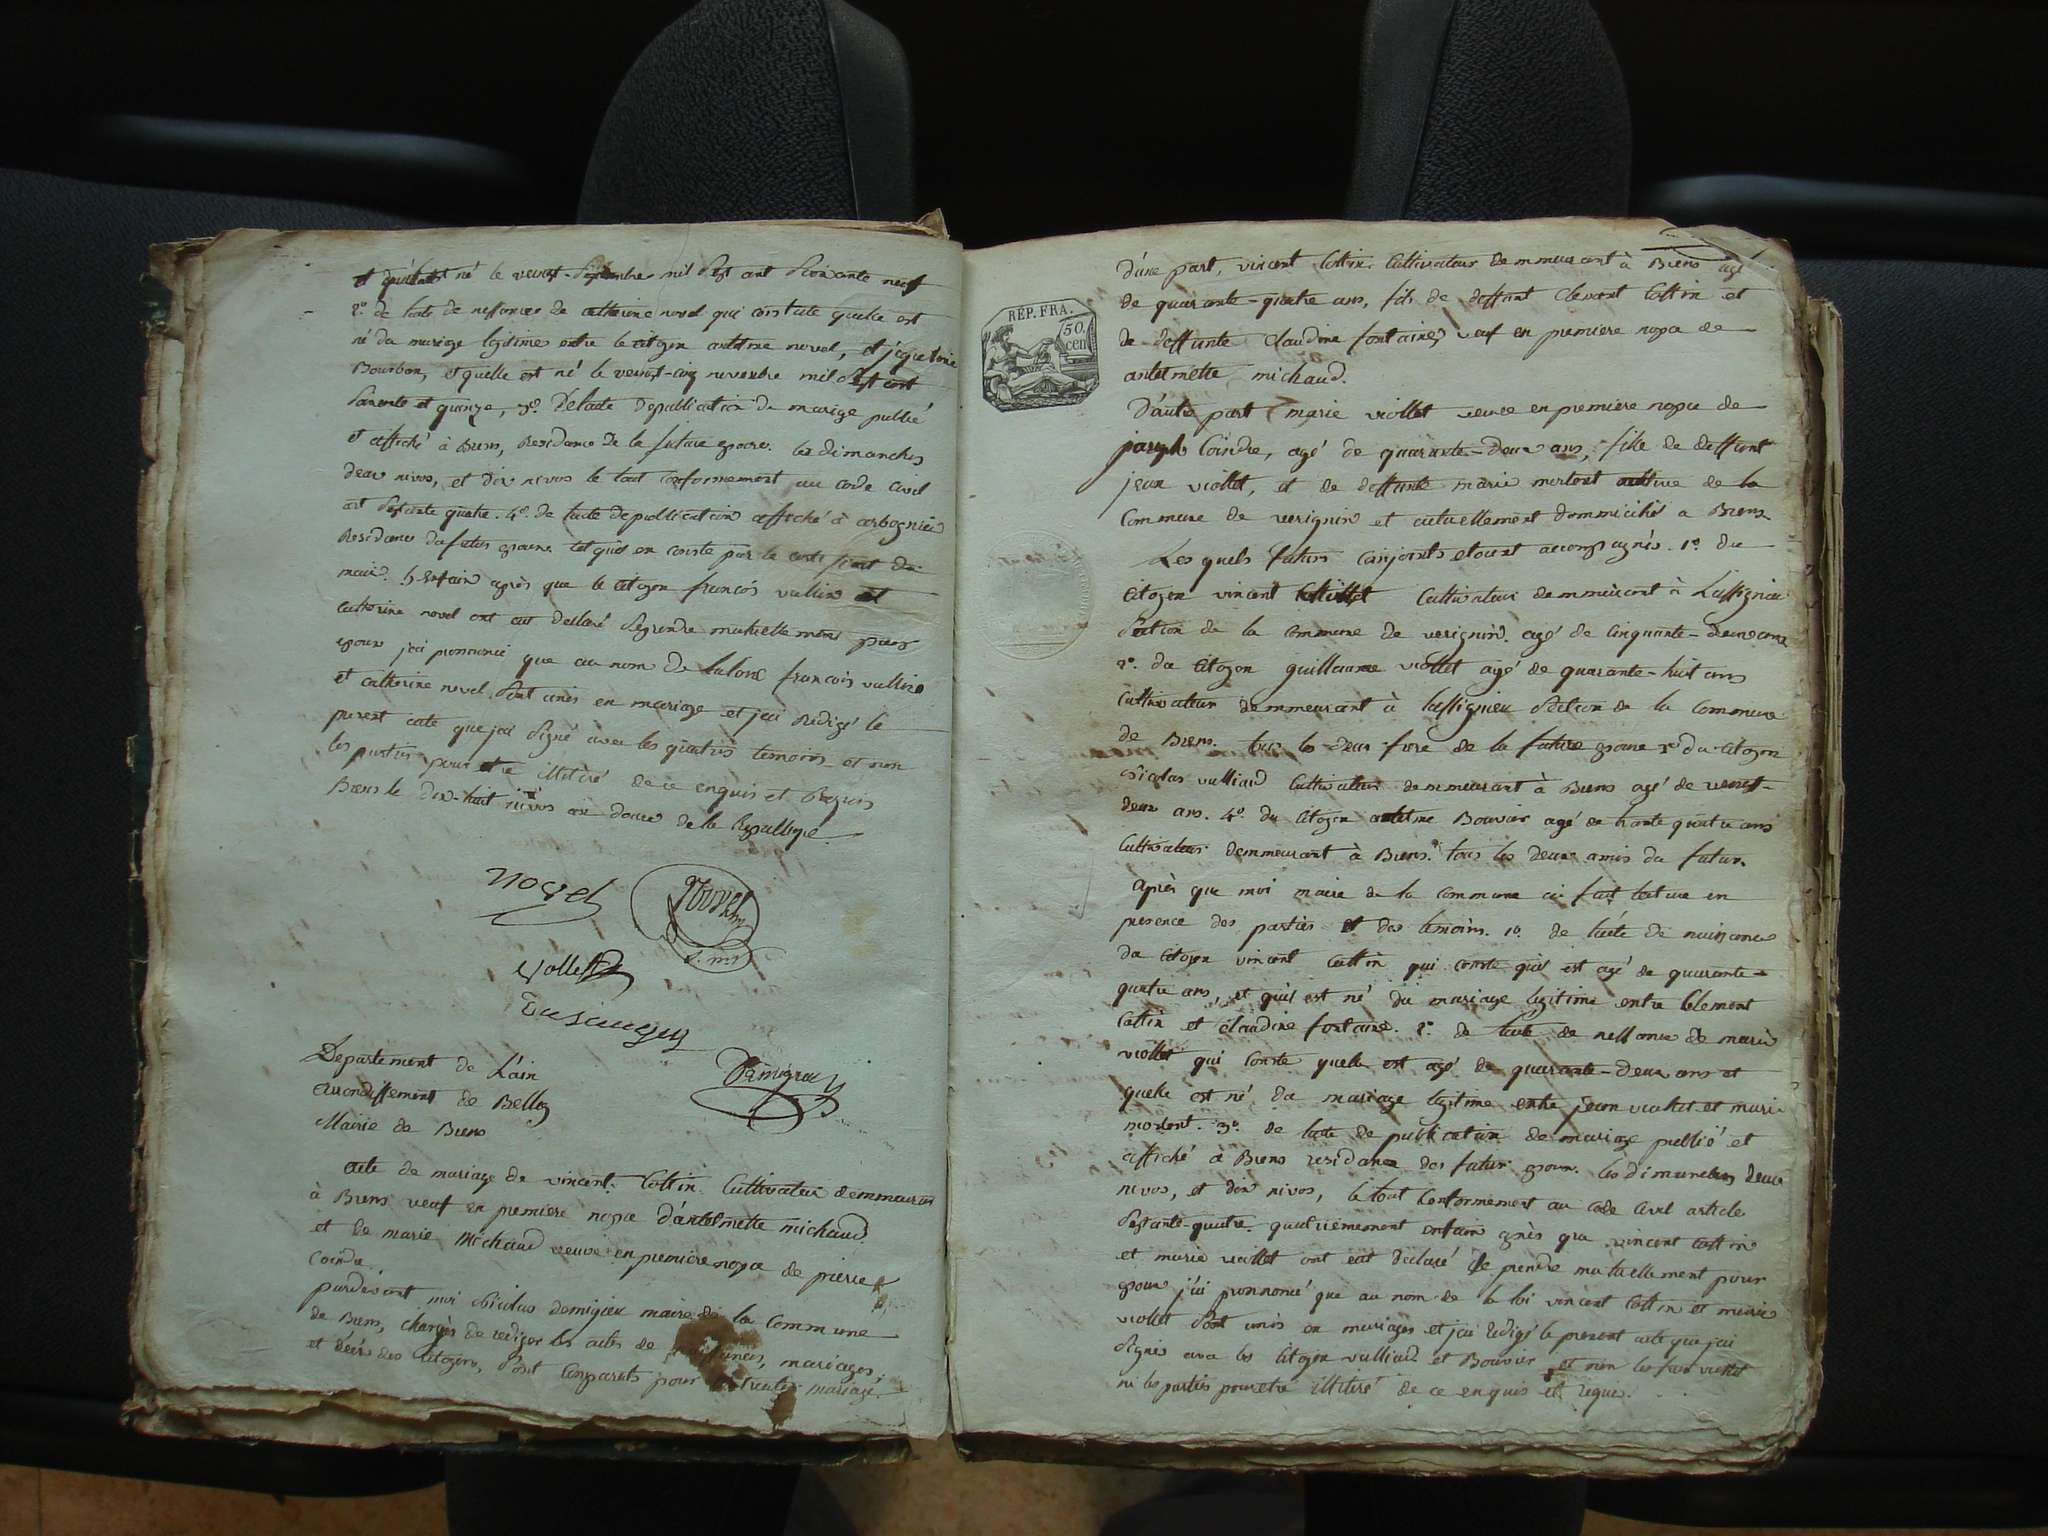 et qu'il est né le veingt Septembre mil Sept cent Soixante neuf
2º. de l'acte de nessance de catherine novel qui constate quelle est
né du mariage legitime entre le citoyen antelme novel, et jaqueline
Bourbon, et quelle est né le veingt-cinq novembre mil Sept cent
Soixante et quinze, 3º. De l'acte de publication de mariage publié
et affiché à Brens, Residance de la future epouse. les dimanches
deux nivos, et dix nivos le tout conformement au code civil
art Soixante quatre. 4º. de l'acte de publication affiché à arbognieu
Residance du futur epoux tel quil en conste par le
maire. 5º. Enfain après que le citoyen françois vullin et
catherine novel ont eut declaré Se prendre mutuellement pour
epoux j'ai prononcé que au nom de la loix françois vullin
et catherine novel Sont unis en mariage et j'ai Redigé le
present acte que j'ai Signé avec les quatres temoins et non
les parties pour etre illitéré de ce enquis et Requis
Brens le dix-huit nivos an douze de la Republique
novel
Novel
vollet
Demigieu
Departement de L'ain
arrondissement de Belley
Mairie de Brens
acte de mariage de vincent Cottin Cultivateur demmeurant
à Brens veuf en premiere nopce d'antelmette michaud
et de marie Michaud veuve en premiere nopce de pierre
Coindre
pardevant moi Nicolas demigieu maire de la Commune
de Brens, chargés de rediger les actes de naissances, mariages,
et décès des Citoyens, Sont Comparuts pour contracter mariage.
RÉP. FRA.
50
cen
D'une part, vincent Cottin Cultivateur demmeurant à Brens agé
de quarante-quatre ans, fils de deffunt Clement Cottin et
de deffunte claudine fontaine, veuf en premiere nopce de
antelmette michaud.
D'autre part marie viollet veuve en premiere nopce de
joseph Coindre, agé de quarante-deux ans, fille de deffunt
jean viollet, et de deffunte marie mortont native de la
Commune de verignin et actuellement dommicilié a Brens
Les quels futurs conjoints etount accompagnés. 1º. du
Citoyen vincent Cultivateur demmeurant à Lassignieu
Section de la Commune de verignin. agé de Cinquante-deux ans
2º. du Citoyen guillaume viollet agé de quarante-huit ans
Cultivateur demmeurant à lassignieu Section de la Commune
de Brens. tous les deux frere de la future epouse 3º. du Citoyen
Nicolas vulliaud Cultivateur demmeurant à Brens agé de veingt-
deux ans. 4º. du Citoyen antelme Bouvier agé de trante quatre ans
Cultivateur demmeurant à Brens. tous les deux amis du futur.
après que moi maire de la commune ai fait lecture en
presence des parties et des temoins. 1º. de l'acte de naissance
du Citoyen vincent Cottin qui conste qu'il est agé de quarante-
quatre ans, et qu'il est né du mariage legitime entre Clement
Cottin et claudine fontaine. 2º. de l'acte de nessance de marie
viollet qui conste quelle est agé de quarante-deux ans et
quelle est né du mariage legitime entre jean viollet et marie
mortont. 3º. de l'acte de publication de mariage publié et
affiché a Brens residance des futur epoux. les Dimanches deux
nivos, et dix nivos, le tout Conformement au code Civil article
Soixante-quatre. quatriemement enfain après que vincent Cottin
et marie viollet ont eut déclaré Se prendre mutuellement pour
epoux j'ai prononcé que au nom de la loi vincent Cottin et marie
viollet Sont unis en mariages et j'ai redigé le present acte que j'ai
Signés avec les Citoyen vulliaud et Bouvier et non les freres viollet
ni les parties pour etre illiteré de ce enquis et requis.